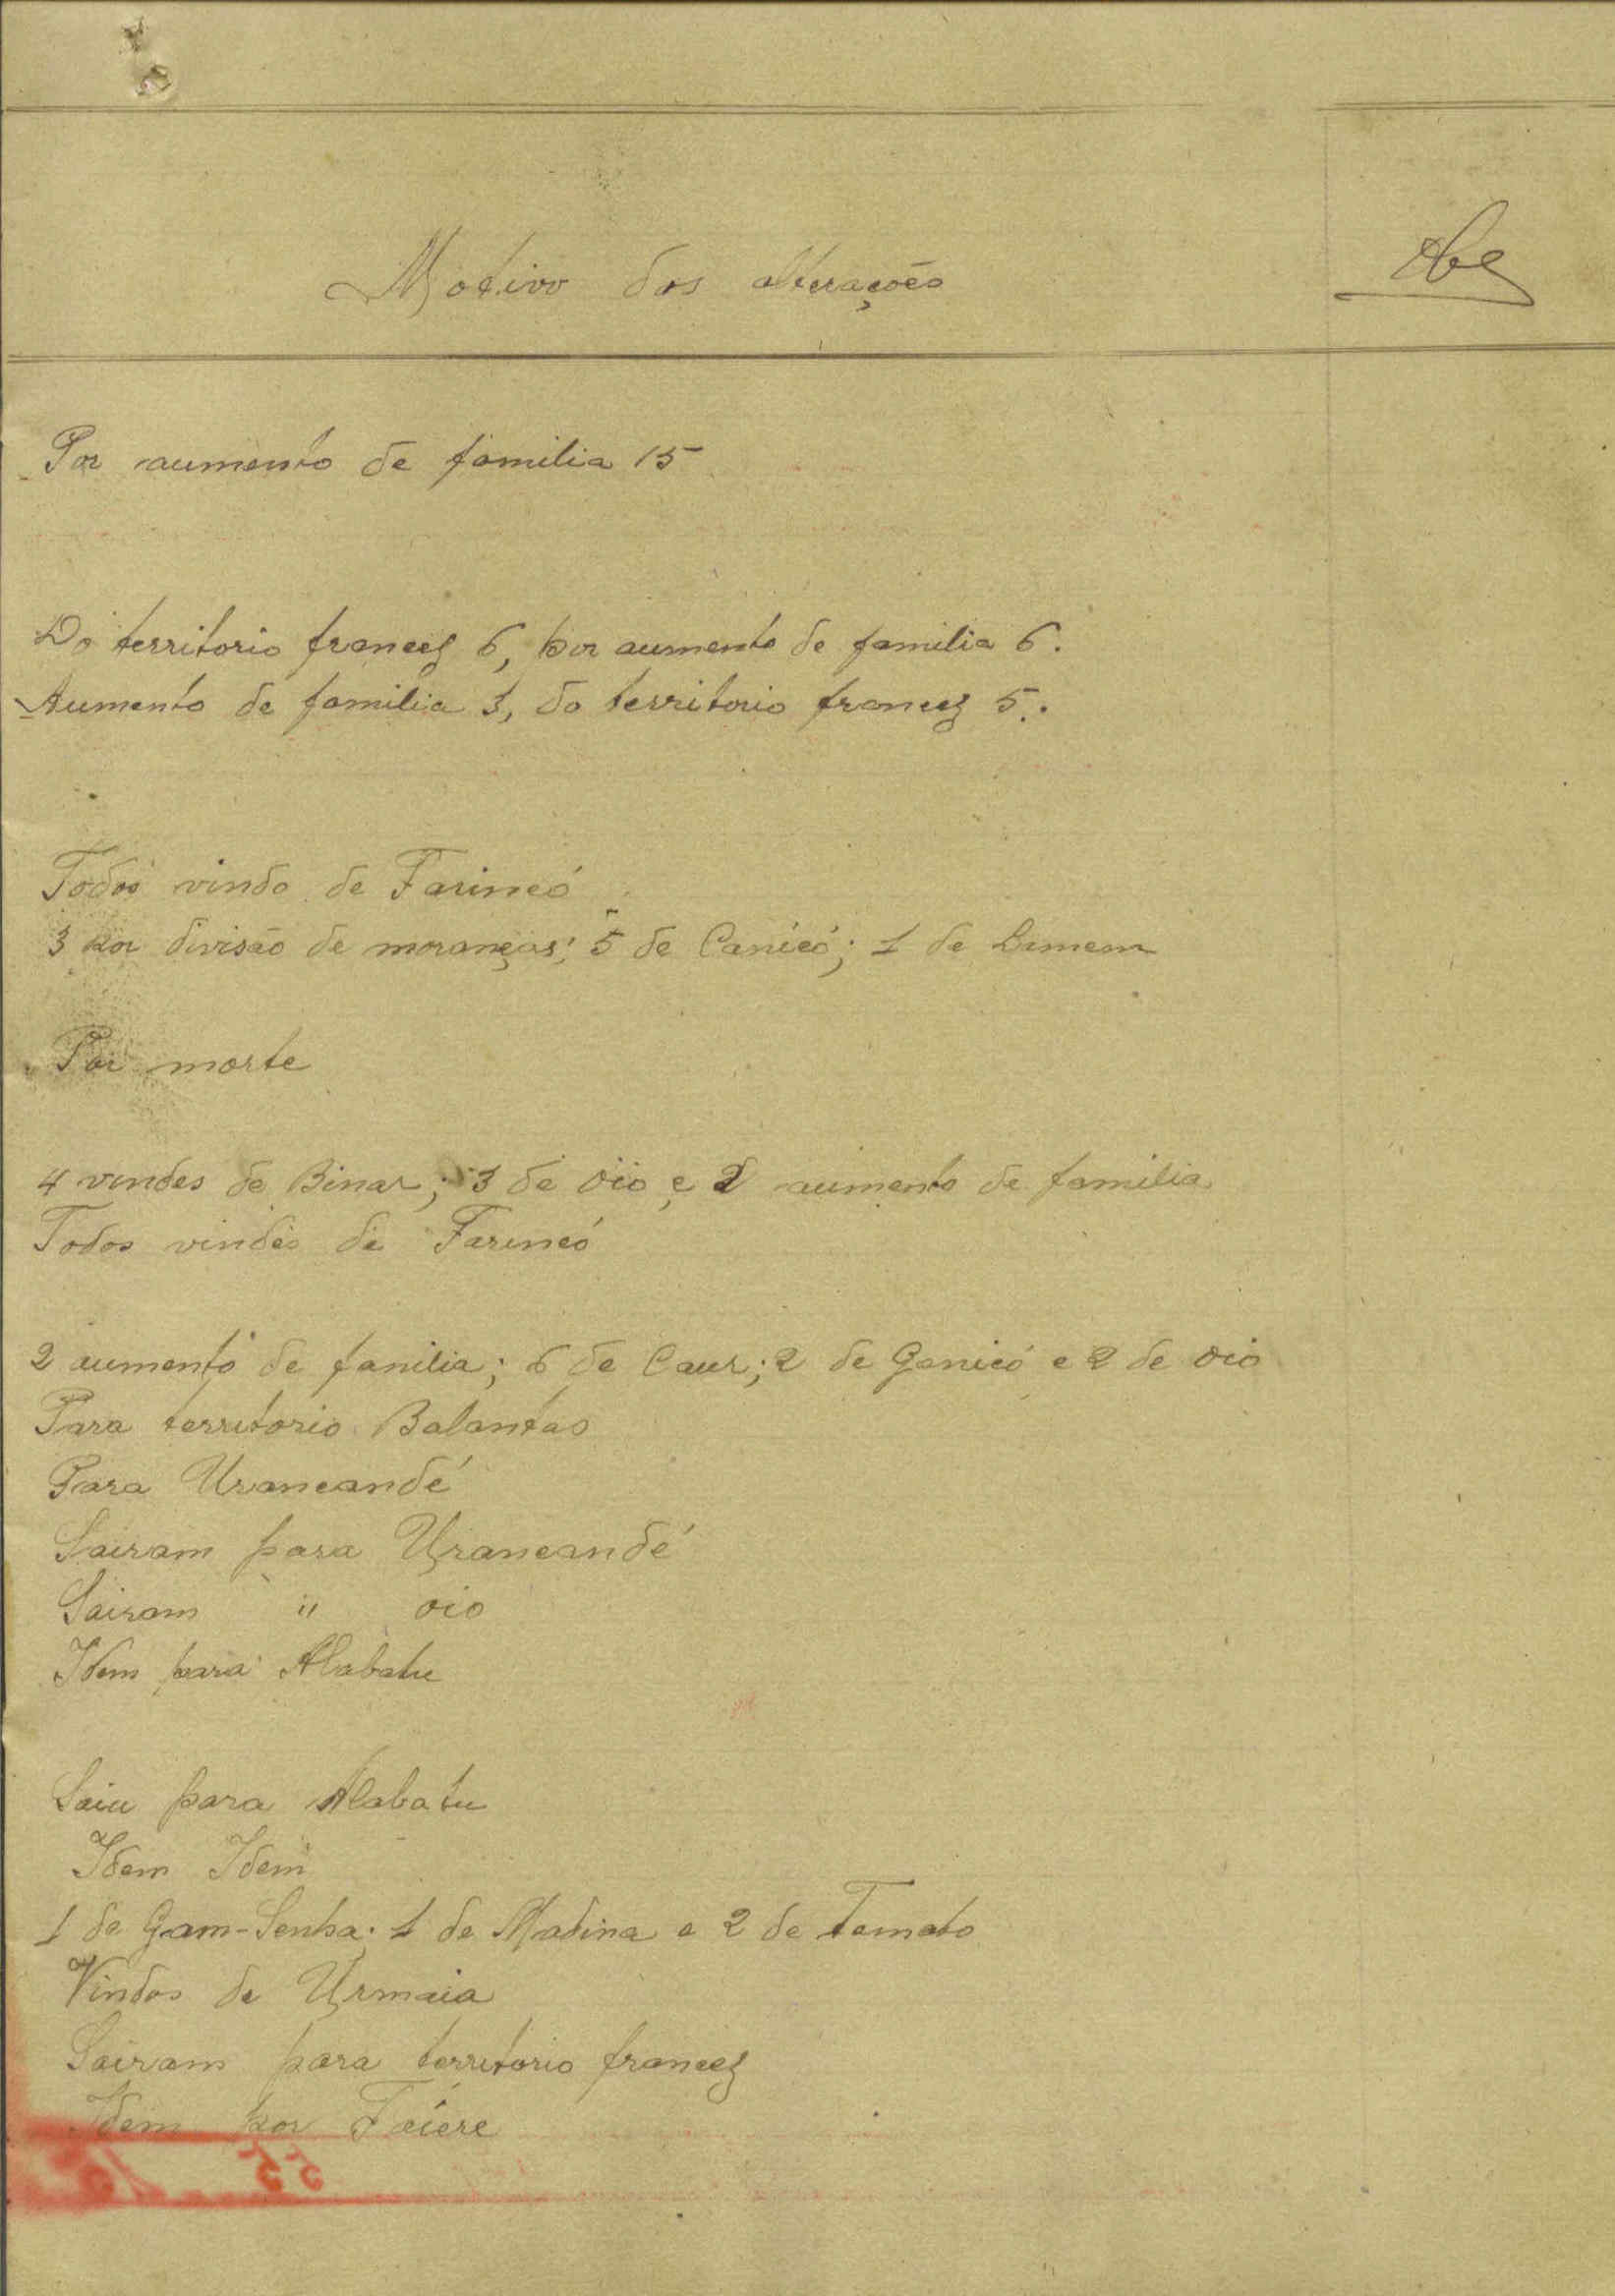 Motivo das alterações
Obs
Por aumento de familia 15
Do territorio francez 6, por aumento de familia 6.
Aumento de familia 3, do territorio francez 5.
Todos vindo de Farincó
3 por divisão de moranças; 5 de Canicó; 1 de
Por morte
4 vindos de Binar; 3 de Oio e 2 aumento de familia
Todos vindos de Farincó
2 aumento de familia; 6 de Caur; 2 de Ganicó e 2 de Oio
Para territorio Balantas
Para Urancandé
Sairam para Urancandé
Sairam " Oio
Idem para Alabatu
Saiu para Alabatu
Idem Idem
1 de Gam-Senha; 1 de Madina e 2 de Tamato
Vindos de Urmaia
Sairam para territorio francez
Idem por
55